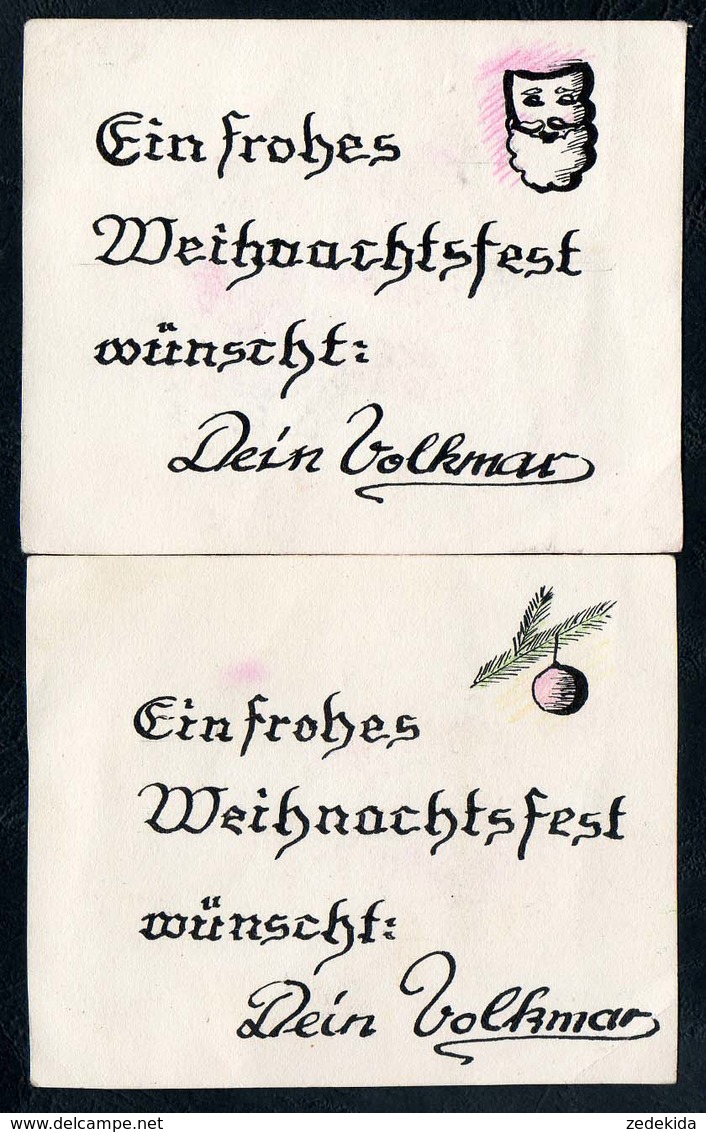 Ein frohes
Weihnachtsfest
wünscht:
Dein Volkmar
Ein frohes
Weihnachtsfest
wünscht:
Dein Volkmar
delcampe.net
zedekida